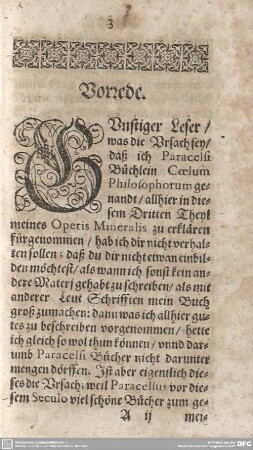 3
Vorrede.
GVnstiger Leser /
was die Vrsach sey /
daß ich Paracelsi
Büchlein Cœlum
Philosophorum ge-
nandt / allhier in die-
sem Dritten Theyl
meines Operis Mineralis zu erklären
fürgenommen / hab ich dir nicht verhal-
ten sollen: daß du dir nicht etwan einbil-
den möchtest / als wann ich sonst kein an-
dere Materj gehabt zu schreiben / als mit
anderer Leut Schrifften mein Buch
groß zumachen: dann was ich allhier gu-
tes zu beschreiben vorgenommen / hette
ich gleich so wol thun können / vnnd dar-
umb Paracelsi Bücher nicht darunter
mengen dörffen. Ist aber eigentlich die-
ses die Vrsach: weil Paracelsus vor die-
sem Seculo viel schöne Bücher zum ge-
A ij mei-